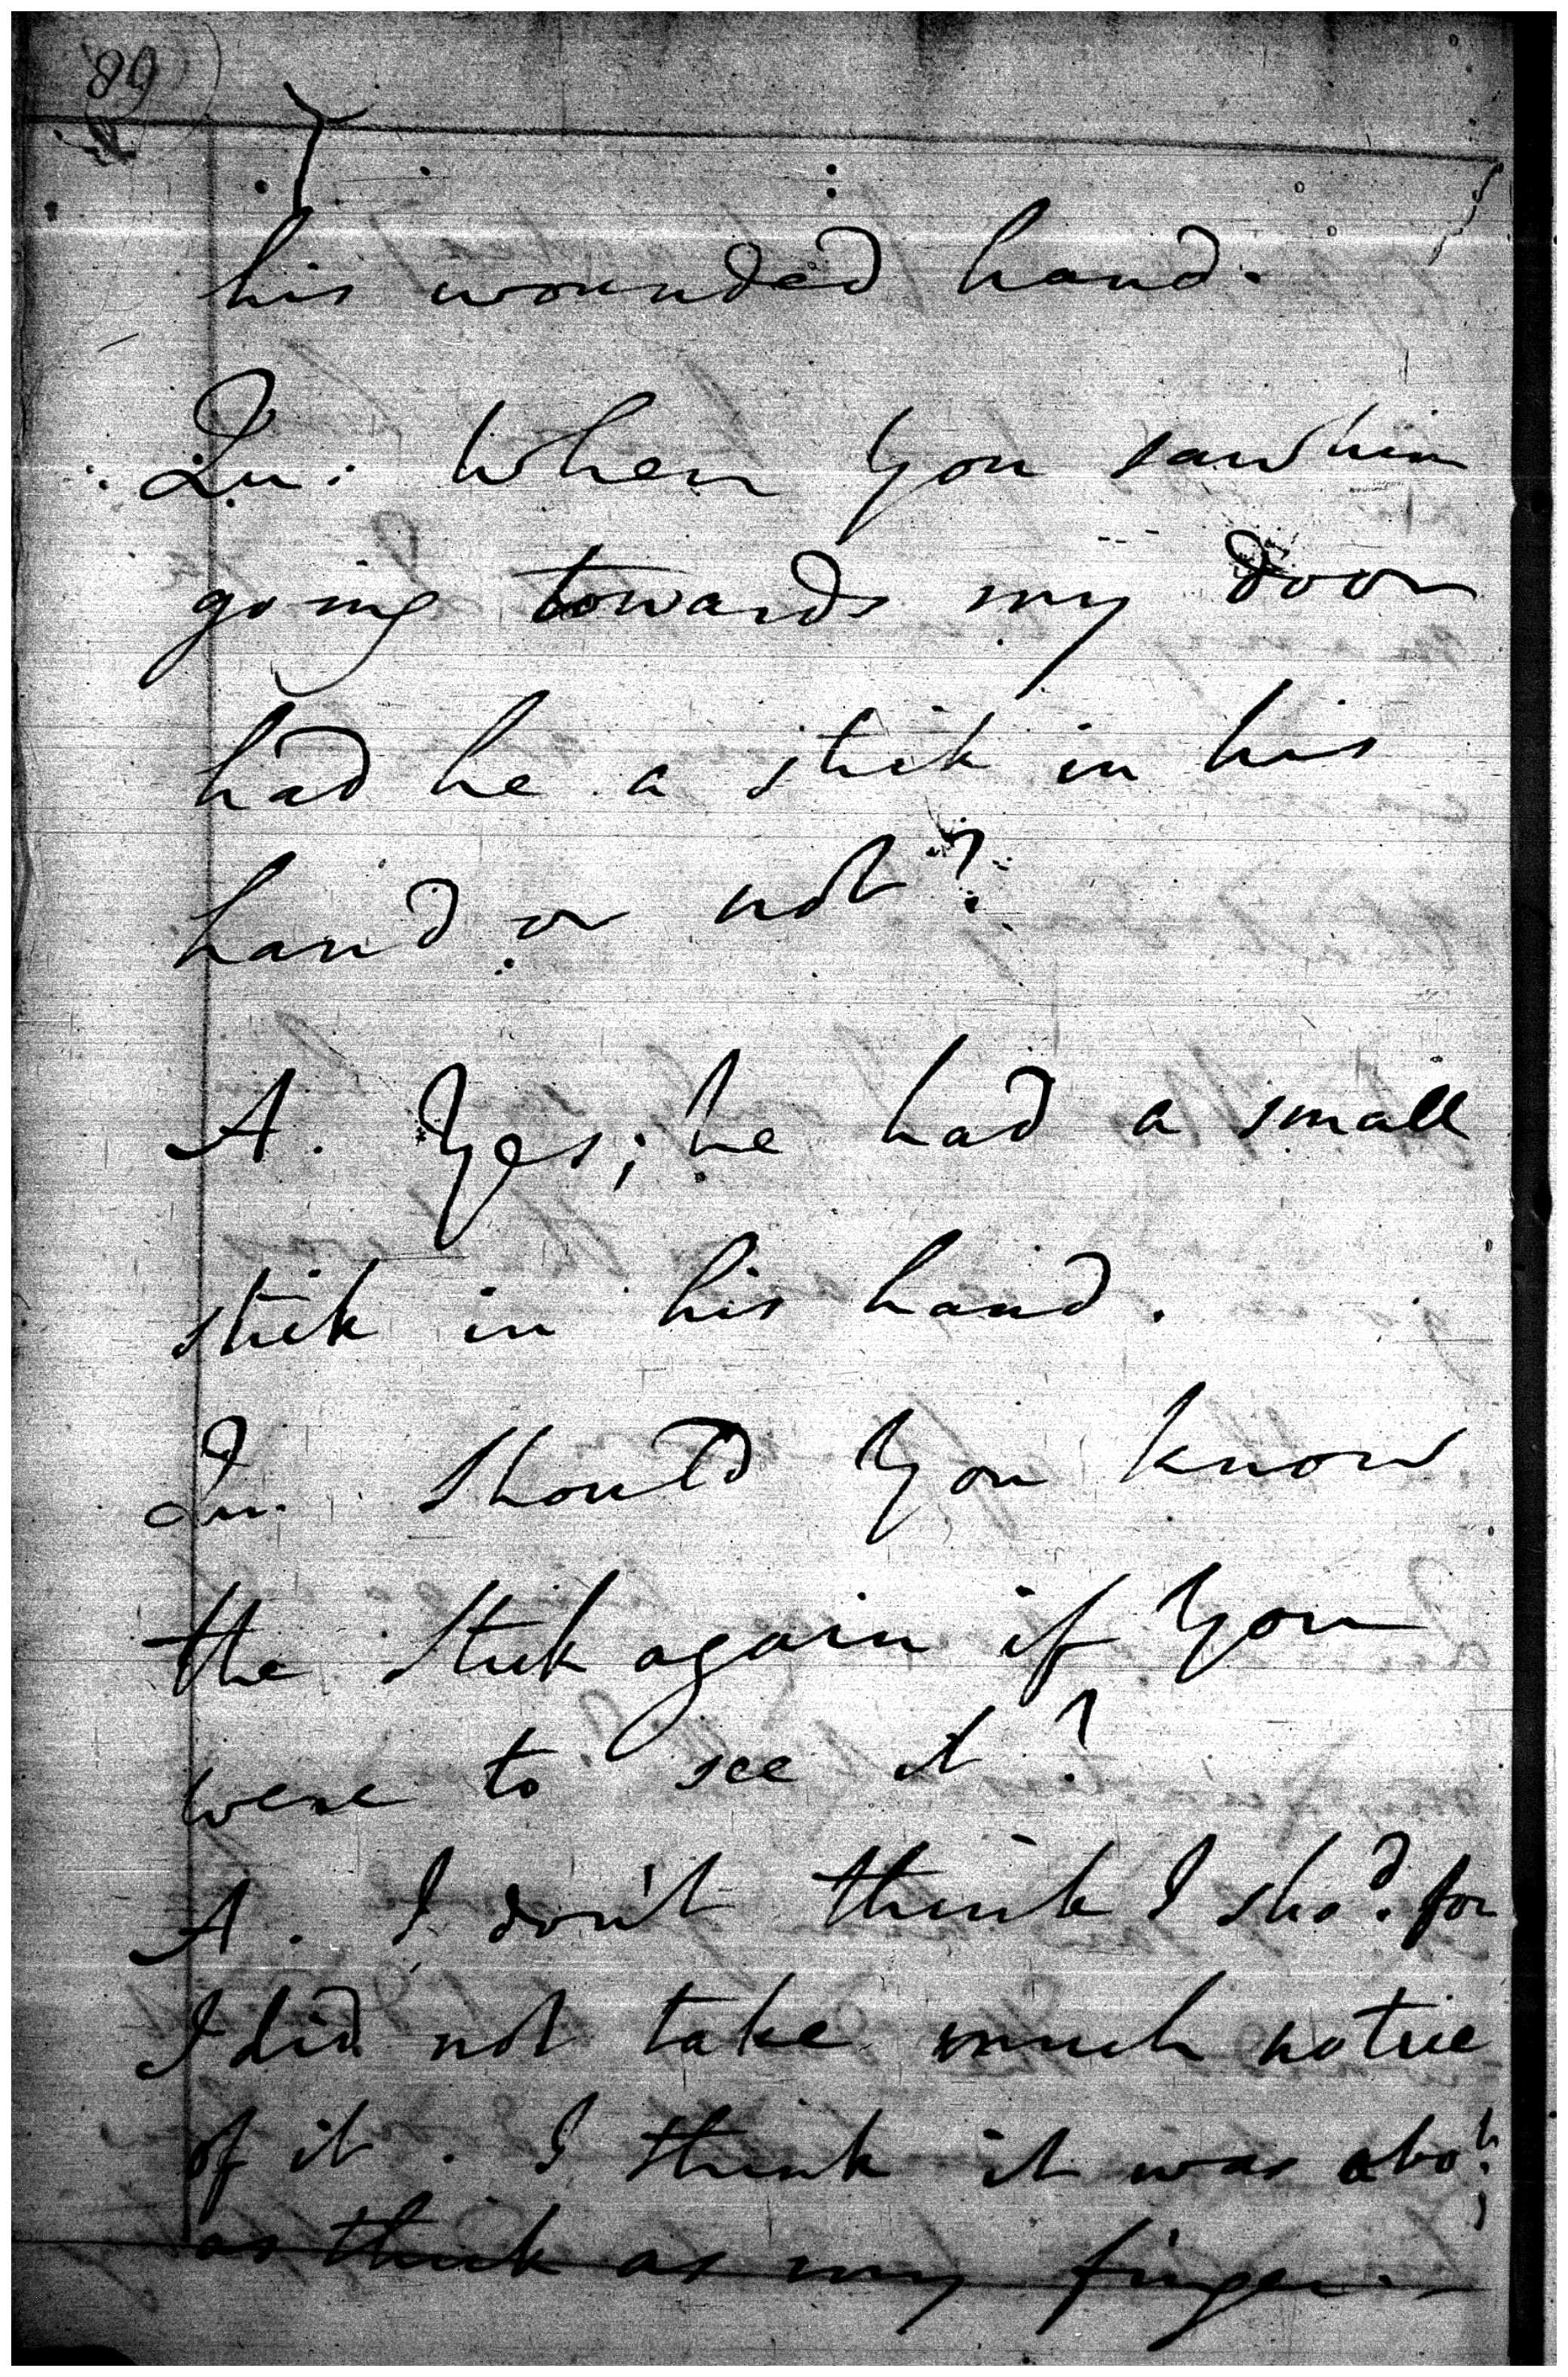 89
his wounded hand.
Qu: When you saw him
going towards my door
had he a stick in his
hand or not?
A. Yes; he had a small
stick in his hand.
Qu. Should you know
the stick again if you
were to see it?
A. I don't think I sho.d for
I did not take much notice
of it. I think it was abo.t
as thick as my finger.